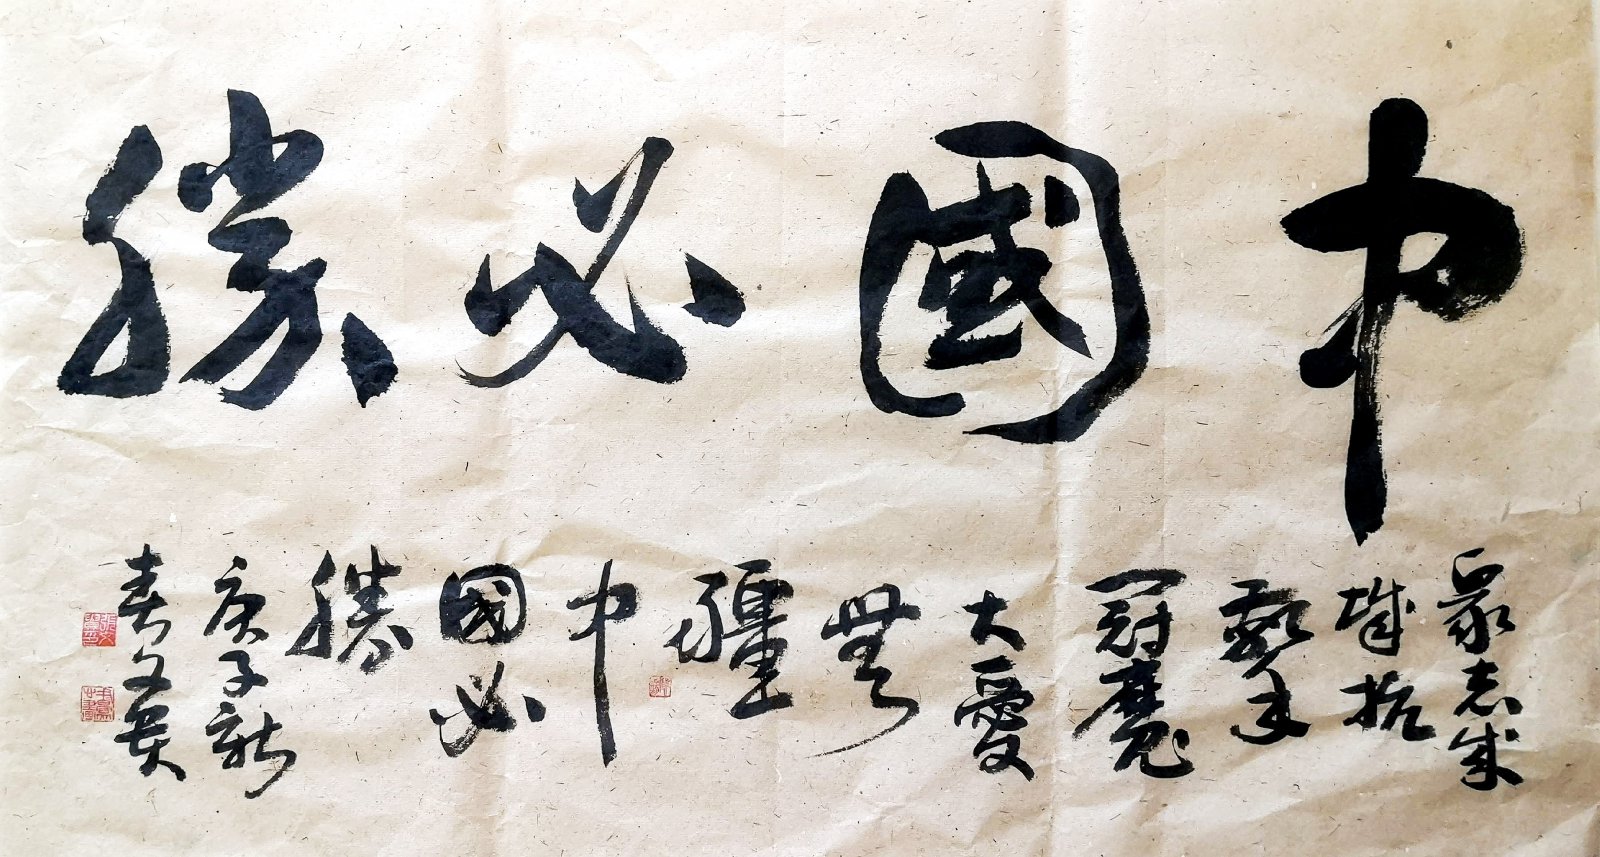 中國必勝
衆志成
城抗
擊
冠魔
大愛
無
疆
中
國必
勝
庚子新
春文